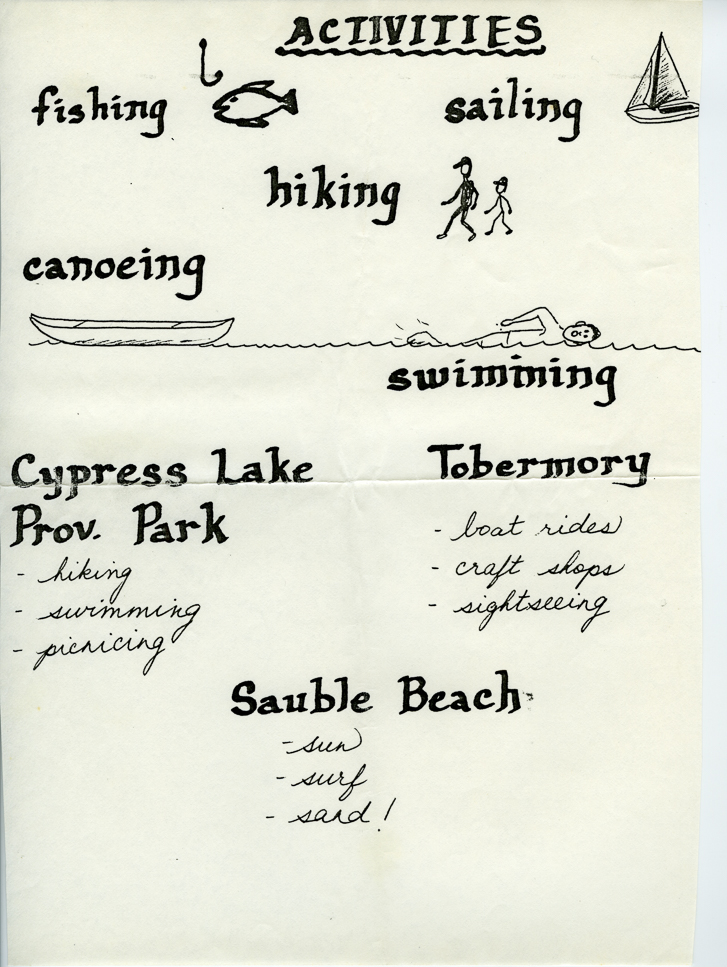 ACTIVITIES
fishing
sailing
hiking
canoeing
swimming
Cypress Lake
Prov. Park
- hiking
- swimming
- picnicing
Tobermory
- boat rides
- craft shops
- sightseeing
Sauble Beach
- sun
- surf
- sand!